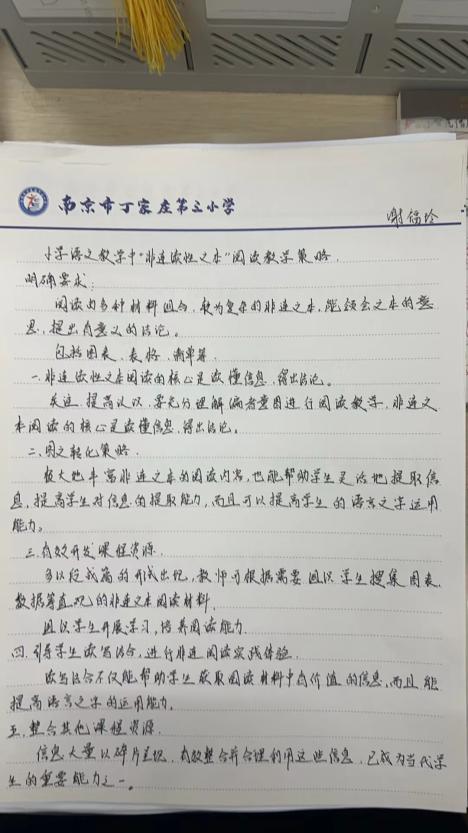 南京市丁家庄第三小学
谢福玲
小学语文教学中"非连续性文本"阅读教学策略.
明确要求:
阅读由多种材料组合、较为复杂的非连文本,能领会文本的意
思,提出有意义的结论。
包括图表、表格、清单等.
一.非连续性文本阅读的核心是读懂信息,得出结论。
关注、提高认识,要充分理解编者意图进行阅读教学,非连文
本阅读的核心是读懂信息,得出结论。
二.图文转化策略.
极大地丰富非连文本的阅读内容,也能帮助学生灵活地提取信
息,提高学生对信息的提取能力,而且可以提高学生的语言文字运用
能力。
三.有效开发课程资源.
多以组或篇的形式出现,教师可根据需要组织学生搜集图表、
数据等直观的非连文本阅读材料.
组织学生开展学习,培养阅读能力.
四.引导学生读写结合,进行非连阅读实践体验.
读写结合不仅能帮助学生获取阅读材料中有价值的信息,而且能
提高语言文字的运用能力.
五.整合其他课程资源.
信息大量以碎片呈现,有效整合并合理利用这些信息,已成为当代学
生的重要能力之一。